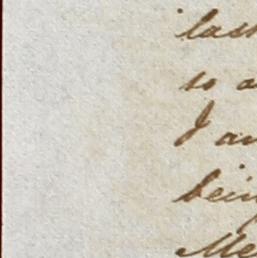 last
so a
I am
being
Me